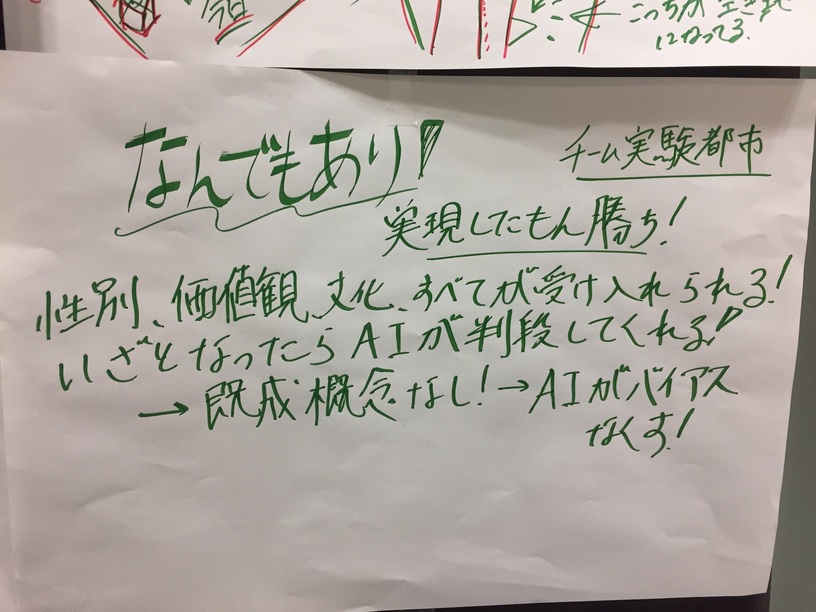 今日
こっちが空き地
になってる.
なんでもあり!
チーム実験都市
実現したもん勝ち!
性別、価値観、文化、すべてが受け入れられる!
いざとなったらAIが判段してくれる!
→既成概念なし!→AIがバイアス
なくす!